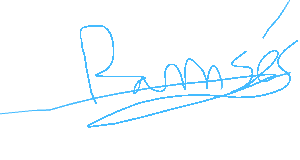 Ramsés